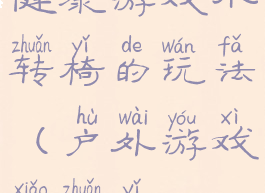 健康游戏小
zhuǎn yǐ de wán fǎ
转椅的玩法
hù wài yóu xì
(户外游戏
xiǎo zhuǎn yǐ